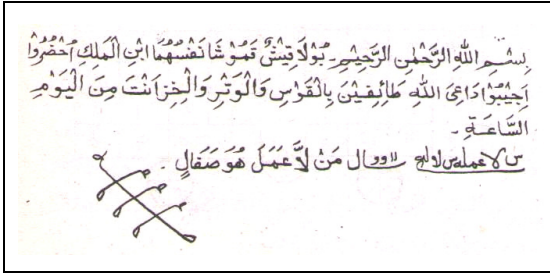 بِسْمِ اللهِ الرَّحْمٰنِ الرَّحِيْمِ۔ بُوْلَاقِيْشٌ قَمُوْشَا نَفْسُهُمَا ابْنِ الْمَلِكِ اُحْضُرُوْا
اَجِيْبُوْا دَاعِیَ اللهِ طَائِفِيْنَ بِالْقَوْسِ وَالْوَتْرِ وَالْخِزَانَتَ مِنَ الْيَوْمِ
السَّاعَةِ ۔
مَنْ لَّا عَمَلَ هُوَ صَفَالٍ .